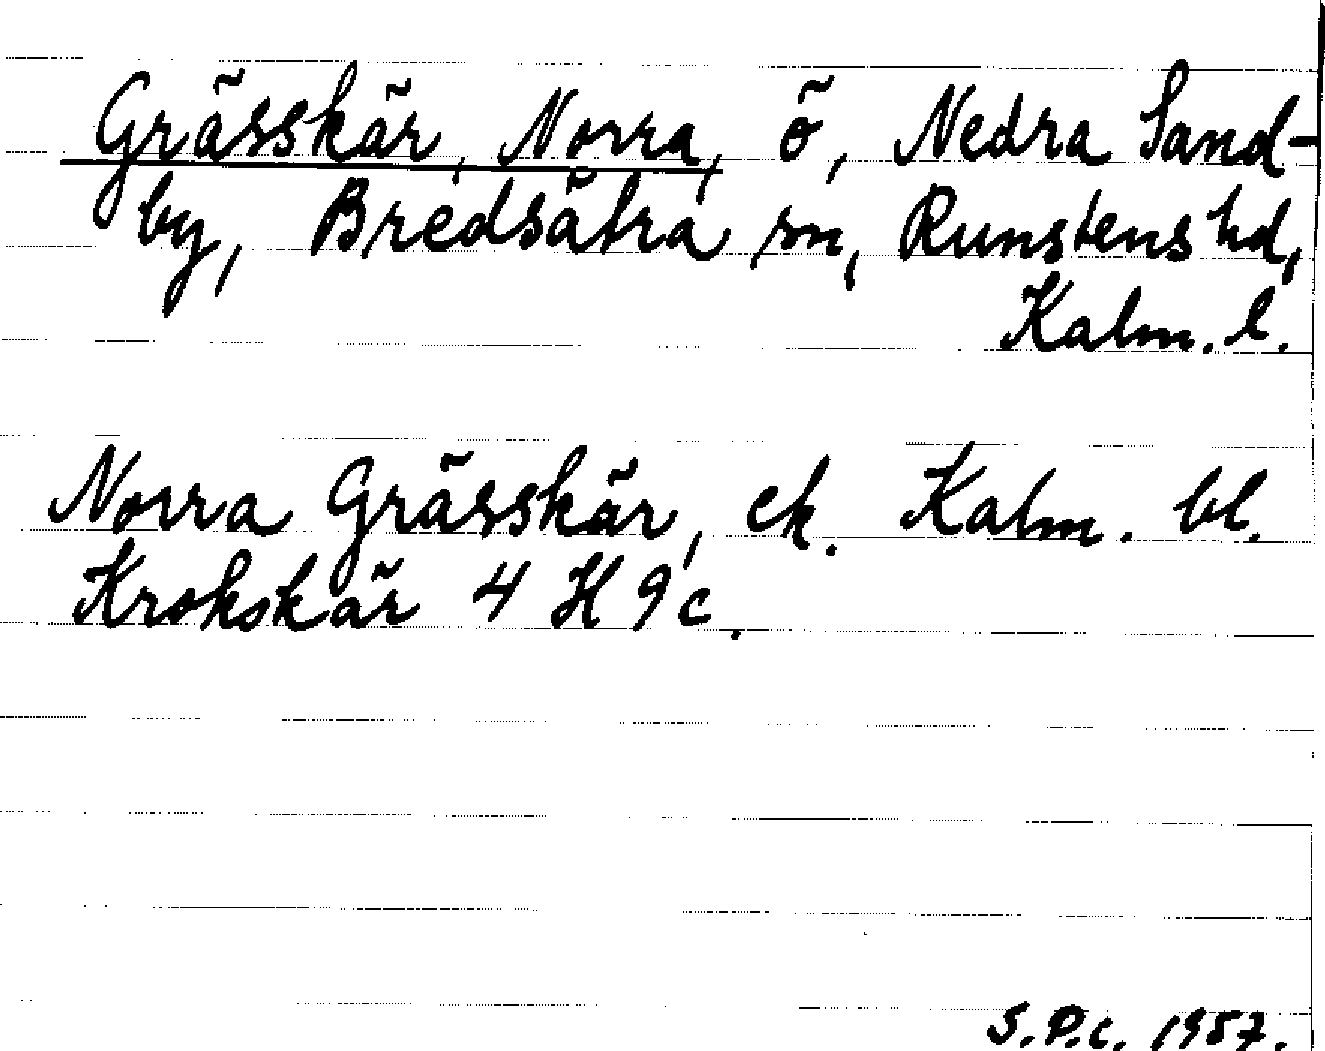 Grässkär, Norra, ö, Nedra Sand-
by, Bredsätra sn, Runstens hd,
Kalm. l.
Norra Grässkär, ek. Kalm. bl.
Krokskär 4 H 9 c.
S.P.C. 1957.